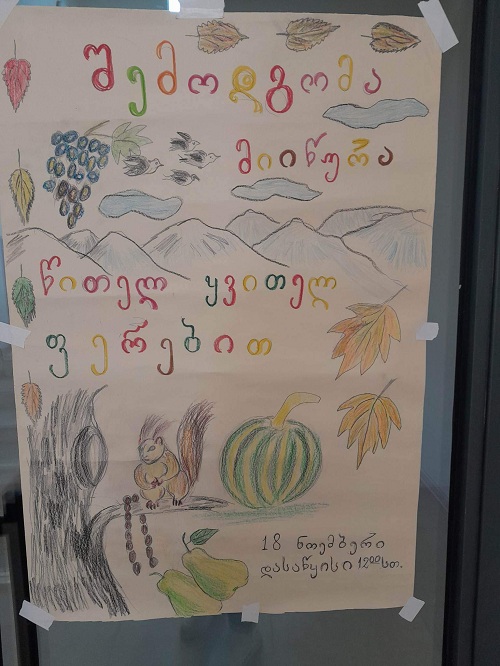 შემოდგომა
მიიწურა
წითელ ყვითელ
ფერებით
18 ნოემბერი
დასაწყისი 12⁰⁰სთ.